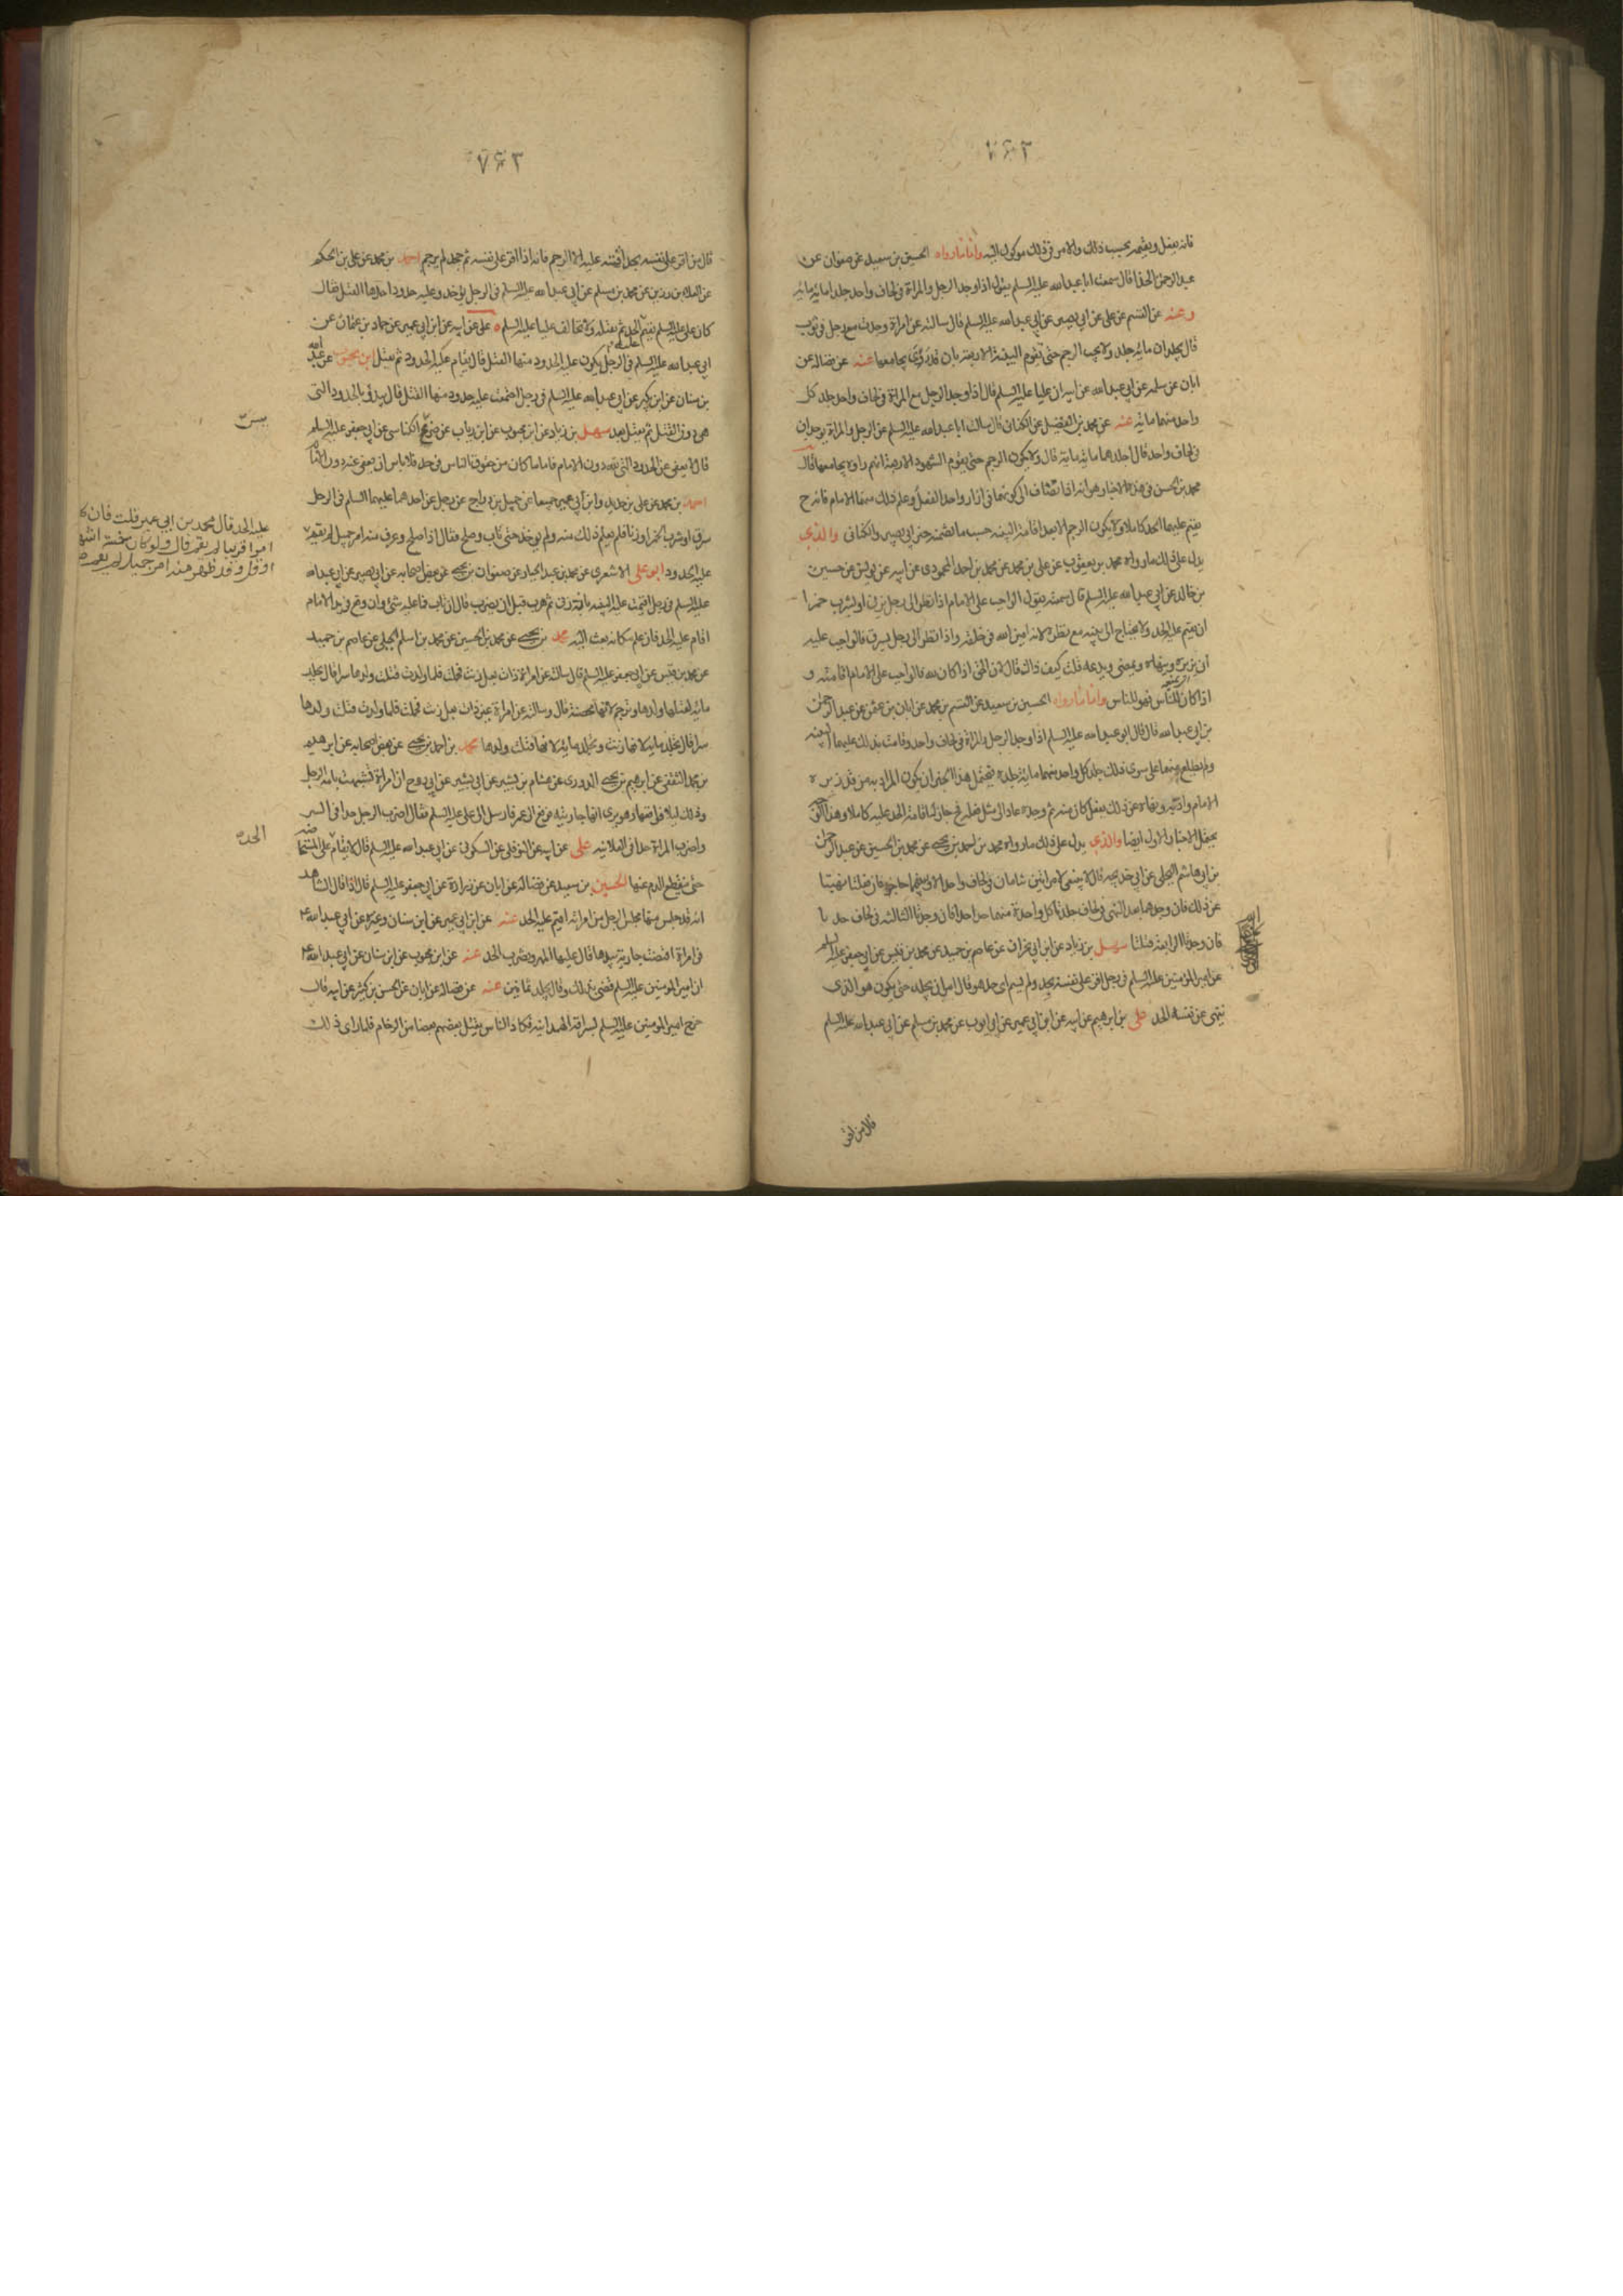 فانه يقتل ويقيمه بحسب ذلك والامر في ذلك موكول اليه واما ما رواه الحسين بن سعيد عن صفوان عن
عبد الرحمن الحذا قال سمعت ابا عبد الله عليه السلم يقول اذا وجد الرجل والمراة في لحاف واحد جلدا مائة مائة
وعنه عن القسم عن علي عن ابي بصير عن ابي عبد الله عليه السلم قال سالته عن امراة وجدت مع رجل في ثوب
قال يجلدان مائة جلدة ولا يجب الرجم حتى تقوم البينة الاربعة بان قد رؤي يجامعها عنه عن فضالة عن
ابان عن سلمه عن ابي عبد الله عن ابيه ان عليا عليه السلم قال اذا وجد الرجل مع المراة في لحاف واحد جلد كل
واحد منهما مائة عنه عن محمد بن الفضيل عن الكناني قال سالت ابا عبد الله عليه السلم عن الرجل والمراة يوجدان
في لحاف واحد قال اجلدهما مائة مائة قال ولا يكون الرجم حتى يقوم الشهود الاربعة انهم راوه يجامعها قال
محمد بن الحسن في هذه الاخبار هو انه اذا انضاف الى كونهما في ازار واحد الفعل وعلم ذلك منهما الامام فانه ح
يقيم عليهما الحد كاملا ولا يكون الرجم الا بعد اقامة البينه حسب ما تضمنه خبر ابي بصير والكناني والذي
يدل على ذلك ما رواه محمد بن يعقوب عن علي بن محمد عن محمد بن احمد المحمودي عن ابيه عن يونس عن حسين
بن خالد عن ابي عبد الله عليه السلم قال سمعته يقول الواجب على الامام اذا نظر الى رجل يزني او يشرب خمرا
ان يقيم عليه الحد ولا يحتاج الى بينه مع نظره لانه امين الله في خلقه واذا نظر الى رجل يسرق فالواجب عليه
ان يزبره وينهاه ويمضي ويدعه قلت كيف ذاك قال لان الحق اذا كان لله فالواجب على الامام اقامته و
اذا كان للناس فهو للناس واما ما رواه الحسين بن سعيد عن القسم بن محمد عن ابان بن عثمن عن عبد الرحمن
بن ابي عبد الله قال قال ابو عبد الله عليه السلم اذا وجد الرجل والمراة في لحاف واحد وقامت بذلك عليهما البينه
ولم يطلع منهما على سوى ذلك جلد كل واحد منهما مائة جلده يحتمل هذا الخبر ان يكون المراد به من قد زبره
الامام وادبه ونهاه عن ذلك بفعل كان منه ثم وجده عاد الى مثل فعله فح جاز له اقامة الحد عليه كاملا وهذا
يحتمل الاخبار الاول ايضا والذي يدل على ذلك ما رواه محمد بن احمد بن يحيى عن محمد بن الحسين عن عبد الرحمن
بن ابي هاشم البجلي عن ابي خديجه قال لا ينبغي لامراتين تنامان في لحاف واحد الا وبينهما حاجز فان فعلتا نهيتا
عن ذلك فان وجدهما بعد النهي في لحاف جلدتا كل واحدة منهما حدا حدا فان وجدتا الثالثه في لحاف حدتا
فان وجدتا الرابعة قتلتا سهل بن زياد عن ابن ابي نجران عن عاصم بن حميد عن محمد بن قيس عن ابي جعفر عليه السلم
عن امير المومنين عليه السلم في رجل اقر على نفسه بحد ولم يسم اي حد هو قال امر ان يجلد حتى يكون هو الذي
ينهى عن نفسه الحد علي بن ابرهيم عن ابيه عن ابن ابي عمير عن ابي ايوب عن محمد بن مسلم عن ابي عبد الله عليه السلم
قال من اقر
قال من اقر على نفسه بحد اقمته عليه الا الرجم فانه اذا اقر على نفسه ثم جحد لم يرجم احمد بن محمد عن علي بن الحكم
عن العلاء بن رزين عن محمد بن مسلم عن ابي عبد الله عليه السلم في الرجل يؤخذ وعليه حدود احدها القتل فقال
كان علي عليه السلم يقيم الحد ثم يقتله ولا تخالف عليا عليه السلم علي عن ابيه عن ابن ابي عمير عن حماد بن عثمان عن
ابي عبد الله عليه السلم في الرجل يكون عليه الحدود منها القتل قال يقام عليه الحدود ثم يقتل ابن محبوب عن عبد الله
بن سنان عن ابن بكير عن ابي عبد الله عليه السلم في رجل اجتمعت عليه حدود منها القتل قال يبدؤ بالحدود التي
هي دون القتل ثم يقتل بعد سهل بن زياد عن ابن محبوب عن ابن رياب عن ضريس الكناسي عن ابي جعفر عليه السلم
قال لا يعفى عن الحدود التي لله دون الامام فاما ما كان من حقوق الناس في حد فلا باس ان يعفى عنه دون الامام
احمد بن محمد عن علي بن حديد وابن ابي عمير جميعا عن جميل بن دراج عن رجل عن احدهما عليهما السلم في الرجل
سرق او شرب الخمر او زنا فلم يعلم ذلك منه ولم يوخذ حتى تاب وصلح فقال اذا صلح وعرف منه امر جميل لم يقم
عليه الحدود ابو علي الاشعري عن محمد بن عبد الجبار عن صفوان بن يحيى عن بعض اصحابه عن ابي بصير عن ابي عبد الله
عليه السلم في رجل اقيمت عليه البينه بانه زنى ثم هرب قبل ان يضرب قال ان تاب فما عليه شئ وان وقع في يد الامام
اقام عليه الحد فان علم مكانه بعث اليه محمد بن يحيى عن محمد بن الحسين عن محمد بن اسلم الجبلي عن عاصم بن حميد
عن محمد بن قيس عن ابي جعفر عليه السلم قال سالته عن امراة ذات بعل زنت فحملت فلما ولدت قتلت ولدها سرا قال تجلد
مائة لقتلها ولدها وترجم لانها محصنة قال وسالته عن امراة غير ذات بعل زنت فحملت فلما ولدت قتلت ولدها
سرا قال تجلد مائة لانها زنت وتجلد مائة لانها قتلت ولدها محمد بن احمد بن يحيى عن بعض اصحابه عن ابرهيم
بن محمد الثقفي عن ابرهيم بن يحيى الدوري عن هشام بن بشير عن ابي بشير عن ابي روح ان امراة تشبهت بامة لرجل
وذلك ليلا فواقعها وهو يرى انها جاريته فرفع الى عمر فارسل الى علي عليه السلم فقال اضرب الرجل حدا في السر
واضرب المراة حدا في العلانيه علي عن ابيه عن النوفلي عن السكوني عن ابي عبد الله عليه السلم قال لا يقام على المستحاضة
حتى ينقطع الدم عنها الحسين بن سعيد عن فضالة عن ابان عن زرارة عن ابي جعفر عليه السلم قال اذا قال الشاهد
انه قد جلس منها مجلس الرجل من امراته اقيم عليه الحد عنه عن ابن ابي عمير عن ابن سنان وغيره عن ابي عبد الله ع
في امراة اقتضت جارية بيدها قال عليها المهر ويضرب الحد عنه عن ابن محبوب عن ابن سنان عن ابي عبد الله ع
ان امير المومنين عليه السلم قضى بذلك وقال يجلد ثمانين عنه عن فضالة عن ابان عن الحسن بن كثير عن ابيه قال
خرج امير المومنين عليه السلم لسراقة الهمدانيه فكاد الناس يقتل بعضهم بعضا من الزحام فلما راى ذلك
عليه الحد قال محمد بن ابي عمير قلت فان كا
امرا قريبا لم يقم قال ولو كان خمسة اشهر
او اقل وقد ظهر منه امر جميل لم يقم
الحد